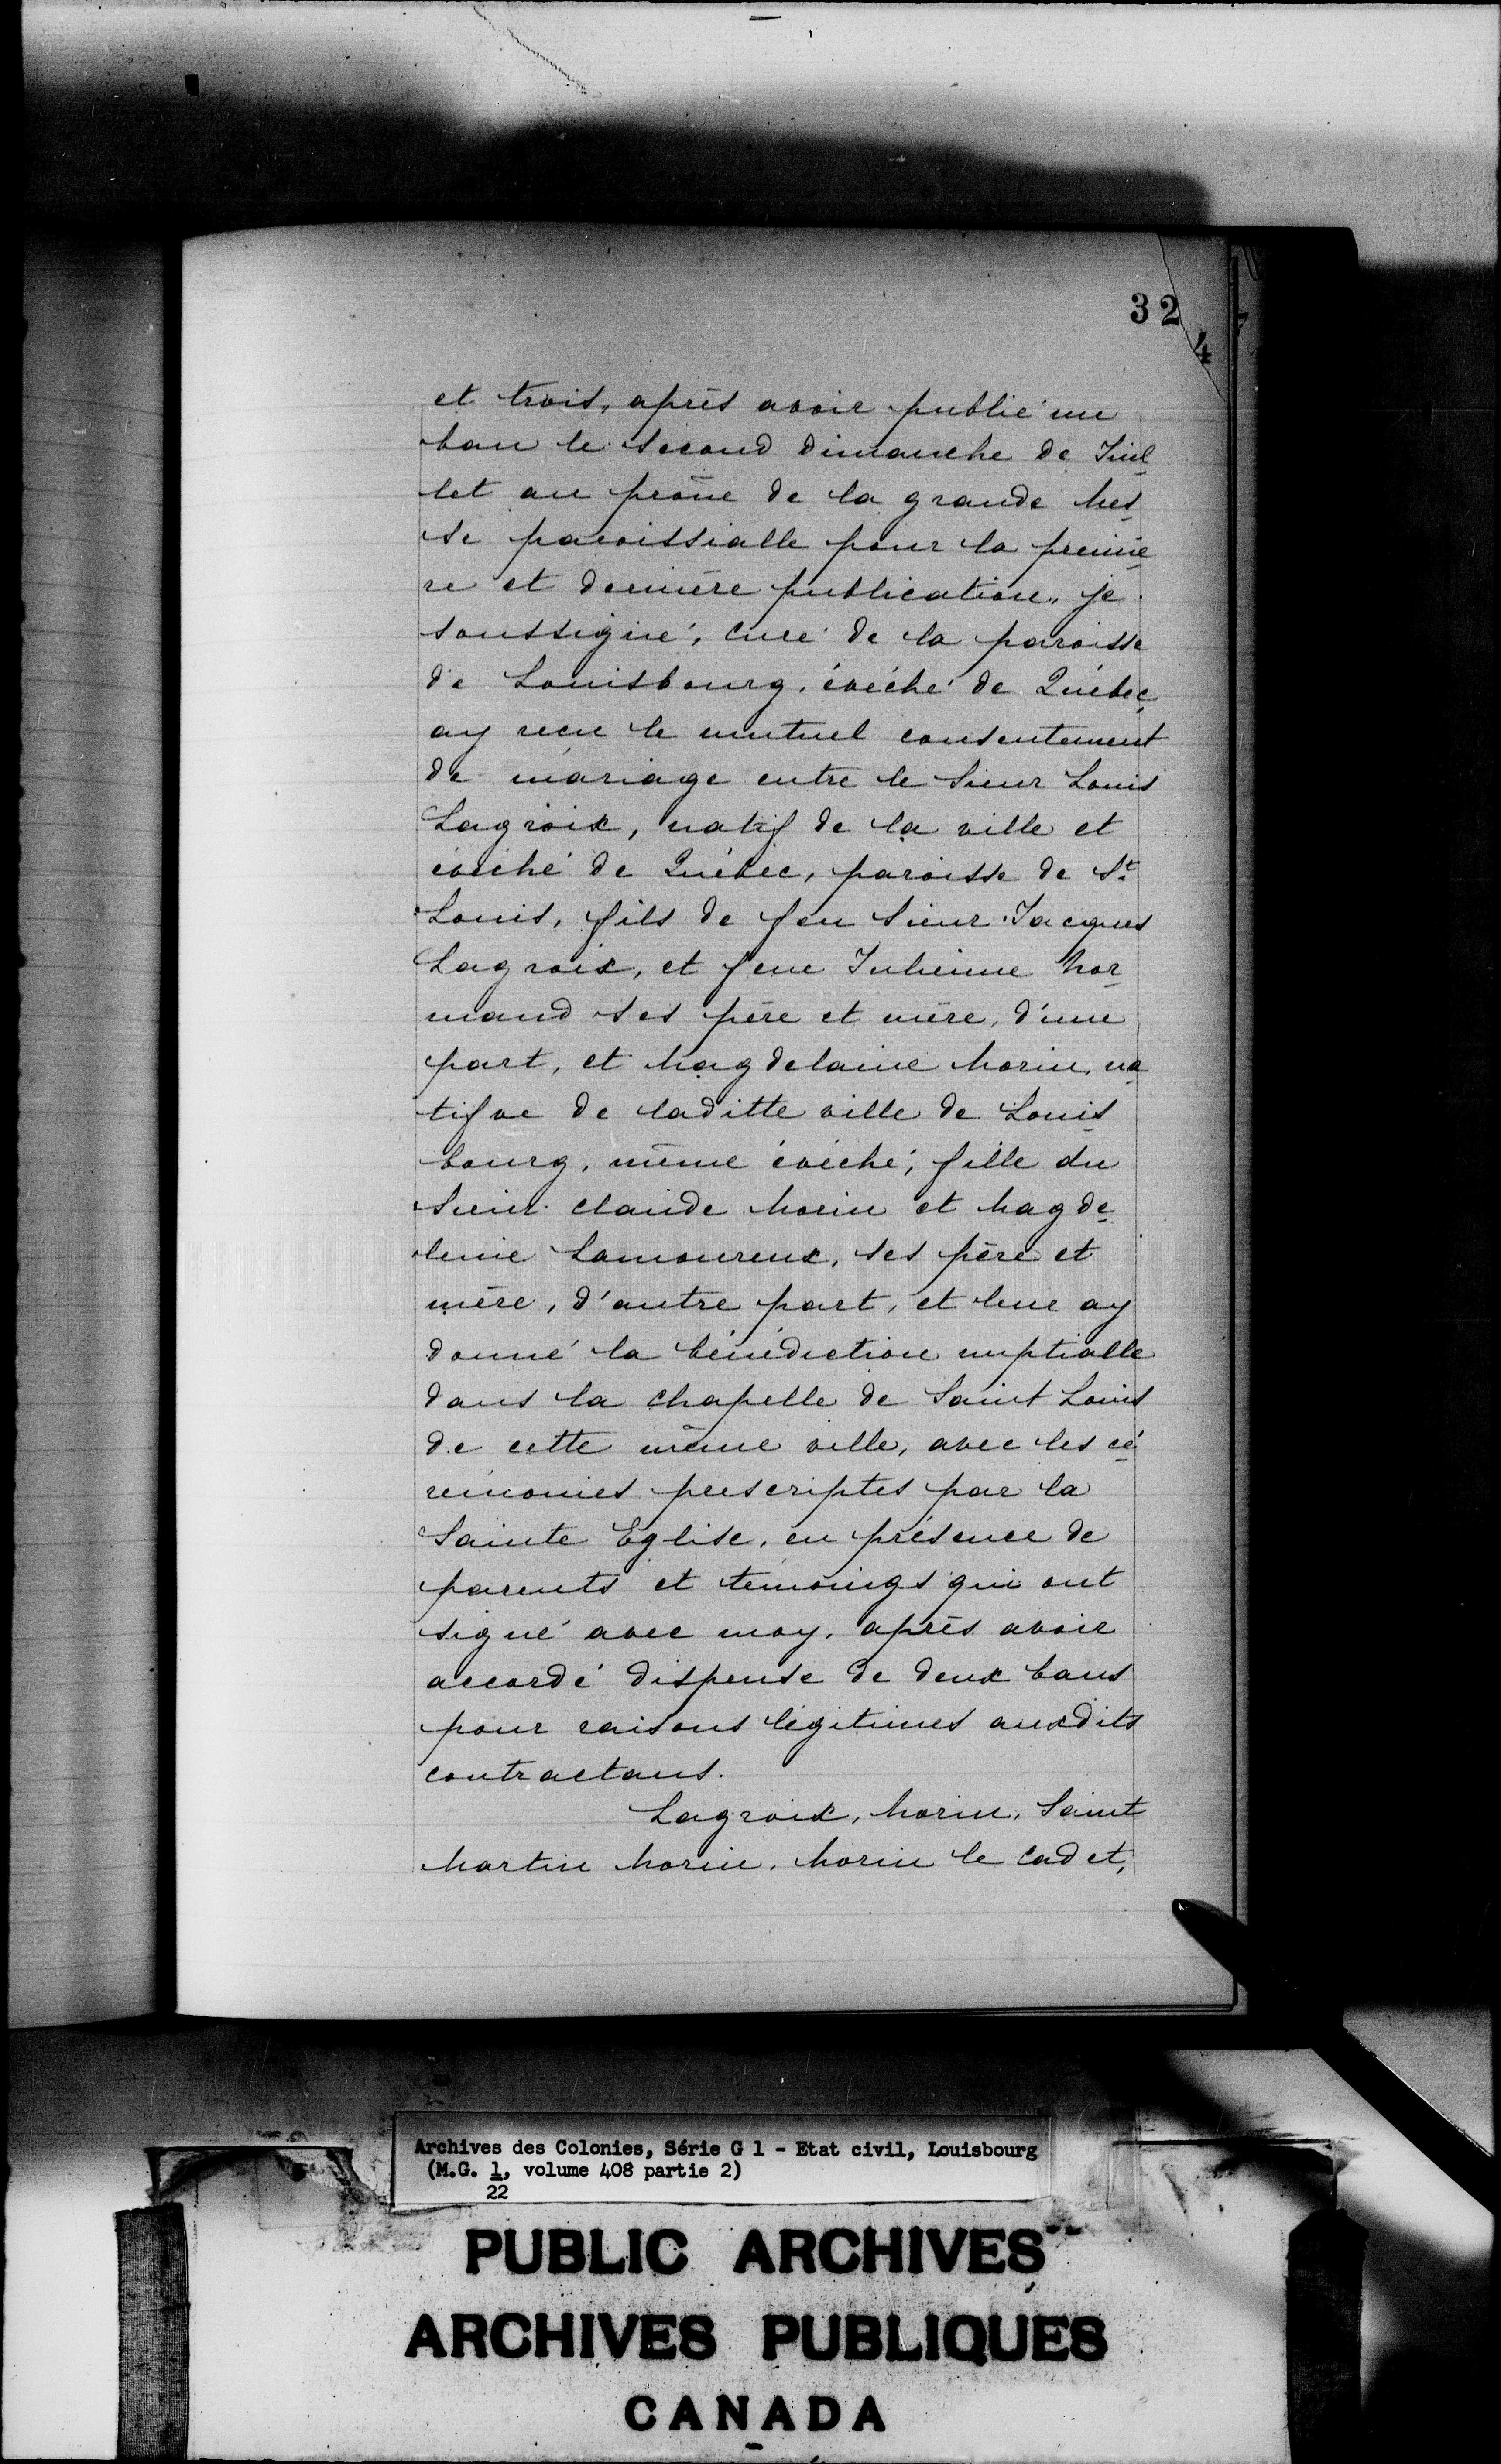 32
4
et trois, après avoir publié un
ban le second dimanche de Juil
let au prône de la grande Mes
se paroissialle pour la premiè
re et dernière publication, je
soussigné, curé de la paroisse
de Louisbourg, évêché de Québec,
ay reçu le mutuel consentement
de mariage entre le Sieur Louis
Lagroix, natif de la ville et
évêché de Québec, paroisse de St
Louis, fils de feu Sieur Jacques
Lagroix, et feue Julienne Nor
mand ses père et mère, d'une
part, et Magdelaine Morin, na
tifve de laditte ville de Louis
bourg, même évêché, fille du
Sieur Claude Morin et Magde
leine Lamoureux, ses père et
mère, d'autre part, et leur ay
donné la bénédiction nuptialle
dans la chapelle de Saint Louis
de cette même ville, avec les cé
rémonies prescriptes par la
Sainte Eglise, en présence de
parents et témoings qui ont
signé avec moy, après avoir
accordé dispense de deux bans
pour raisons légitimes auxdits
contractans.
Lagroix, Morin, Saint
Martin Morin, Morin le Cadet,
Archives des Colonies, Série G 1 - Etat civil, Louisbourg
(M.G. 1, volume 408 partie 2)
22
PUBLIC ARCHIVES
ARCHIVES PUBLIQUES
CANADA